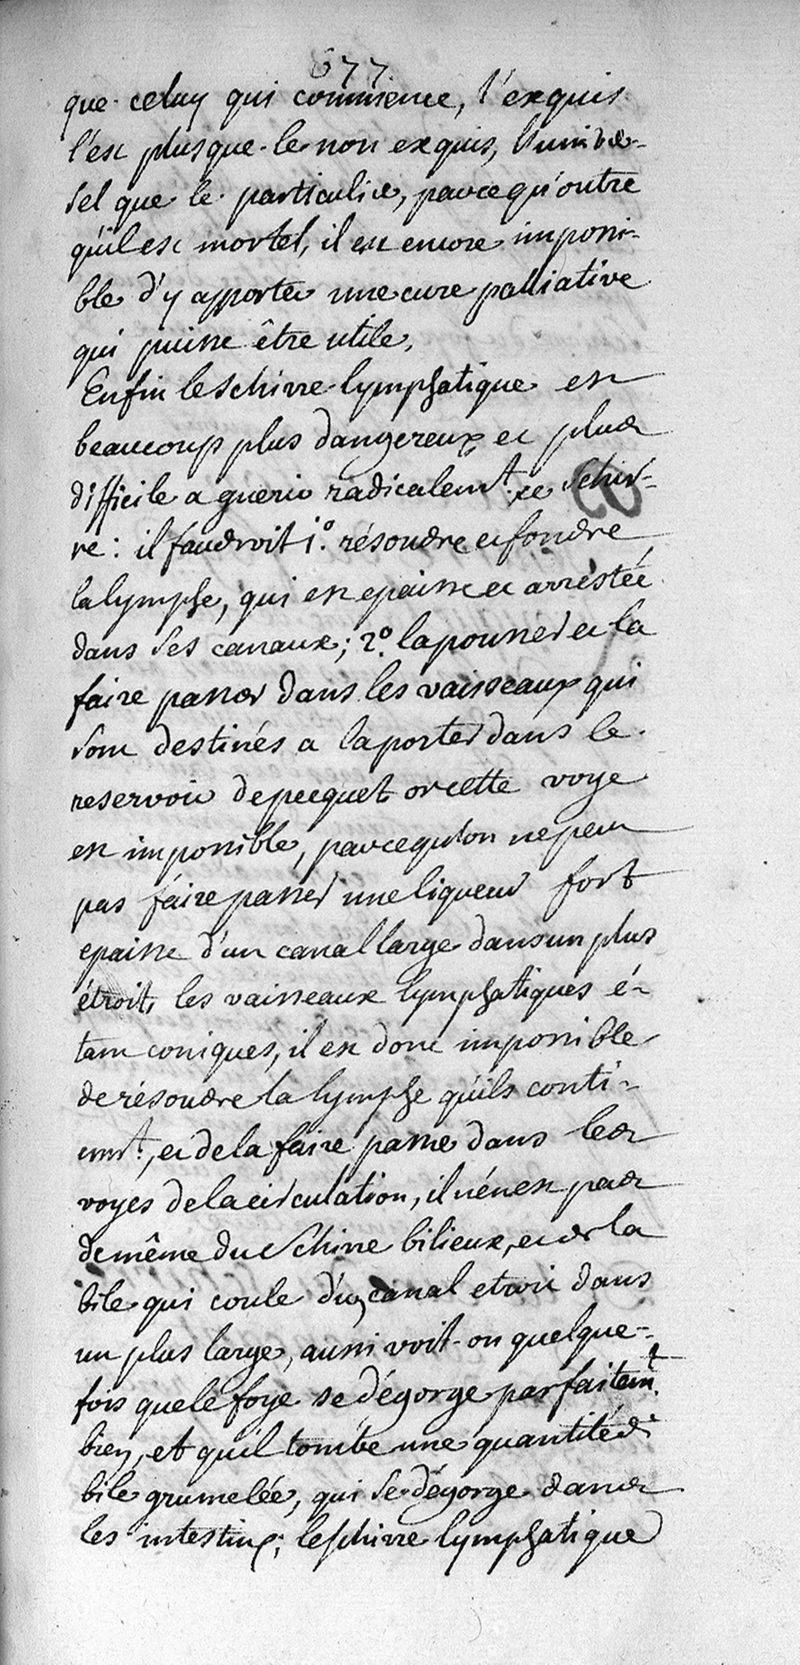 677
que celuy qui commence, l'exquis
l'est plusque le non exquis, l'univer-
sel que le particulier, parcequ'outre
qu'il est mortel, il est encore impossi-
ble d'y apporter une cure palliative
qui puisse être utile,
Enfin le schirre lymphatique est
beaucoup plus dangereux et plus
difficile a guerir radicalemt. ce schir-
re: il faudroit 1o. résoudre et fondre
la lymphe, qui est epaisse et arréstée
dans ses canaux; 2o. la pousser et la
faire passer dans les vaisseaux qui
sont destinés a la porter dans le
reservoir de pecquet or cette voye
est impossible, parcequ'on ne peut
pas faire passer une liqueur fort
epaisse d'un canal large dans un plus
étroit, les vaisseaux lymphatiques é-
tant coniques, il est donc impossible
de résoudre la lymphe qu'ils conti-
ennt., et de la faire passer dans les
voyes de la circulation, il n'en est pas
de même du schirre bilieux, et de la
bile qui coule d'un canal etroit dans
un plus large, aussi voit-on quelque-
fois que le foye se dégorge parfaitemt.
bien, et qu'il tombe une quantité de
bile grumelée, qui se dégorge dans
les intestins; le schirre lymphatique